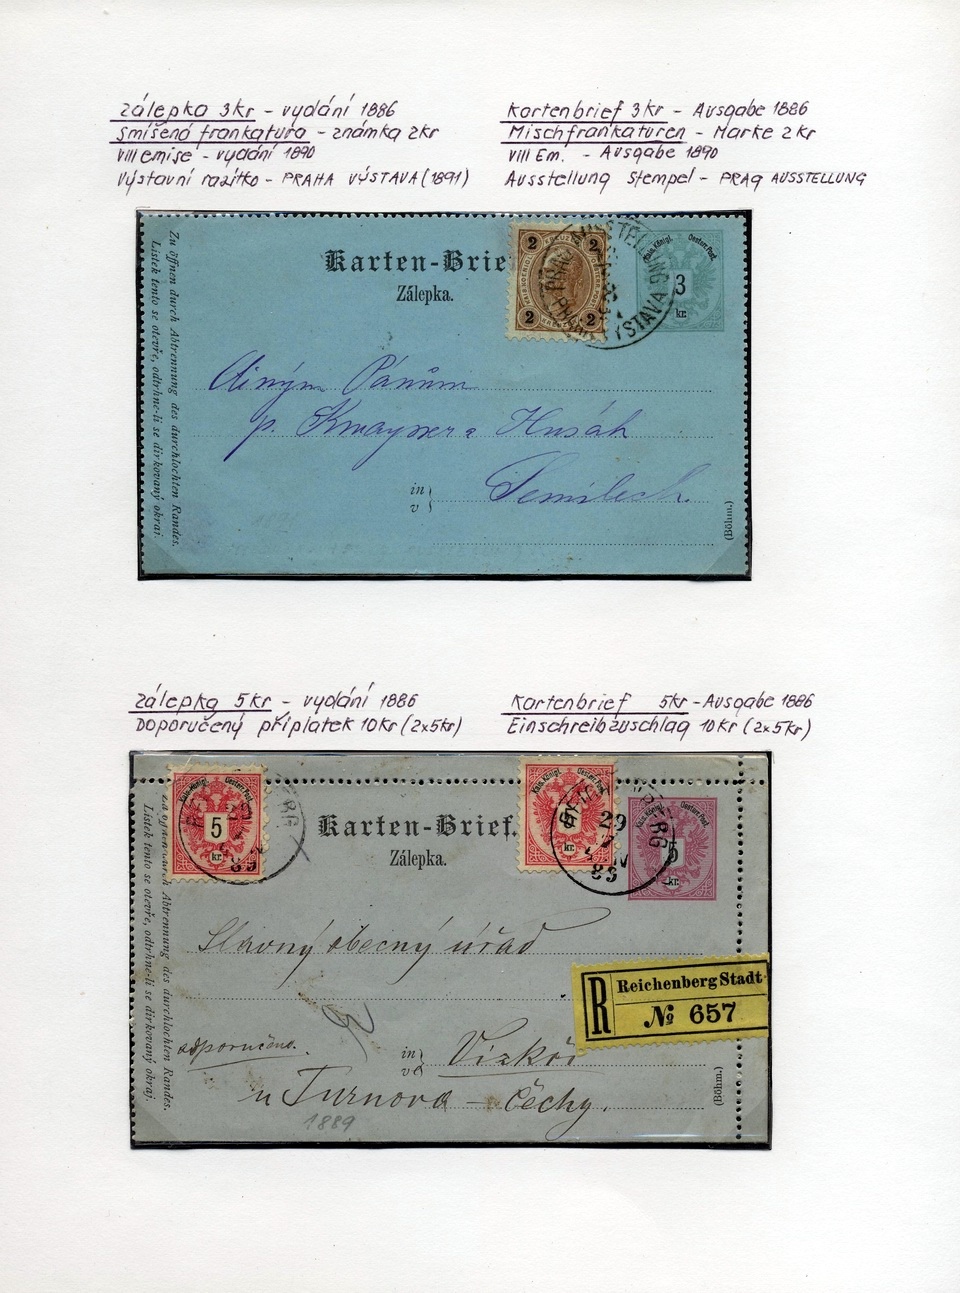 Zálepka 3kr - vydání 1886
Smíšená frankatura - známka 2kr
VIII emise - vydání 1890
Výstavní razítko - PRAHA VÝSTAVA (1891)
Kartenbrief 3kr - Ausgabe 1886
Mischfrankaturen - Marke 2kr
VIII Em. - Ausgabe 1890
Ausstellung Stempel - PRAG AUSSTELLUNG
Zu öffnen durch Abtrennung des durchlochten Randes.
Lístek tento se otevře, odtrhne-li se dírkovaný okraj.
Karten-Brie
Zálepka.
2 2
2 2
Kais. Königl. Oesterr. Post.
3
kr.
Pánům
p. Husák
in
v
Semilech.
(Böhm.)
Zálepka 5kr - vydání 1886
Doporučený příplatek 10kr (2x5kr)
Kartenbrief 5kr - Ausgabe 1886
Einschreibzuschlag 10kr (2x5kr)
öffnen durch Abtrennung des durchlochten Randes.
Lístek tento se otevře, odtrhne-li se dírkovaný okraj.
Kais. Königl. Oesterr. Post.
5
kr.
Karten-Brief.
Zálepka.
Kais. Königl. Oesterr. Post.
kr.
29
89
Kais. Königl. Oesterr. Post.
5
kr.
Slavný obecný úřad
R
Reichenberg Stadt
№ 657
odporučeno.
in
v
u Turnova - Čechy.
(Böhm.)
1889